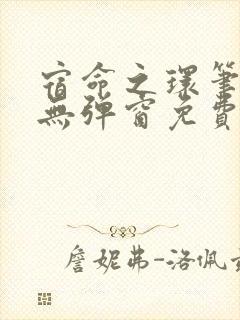 宿命之環筆
無彈窗免費
詹妮弗-洛佩茲